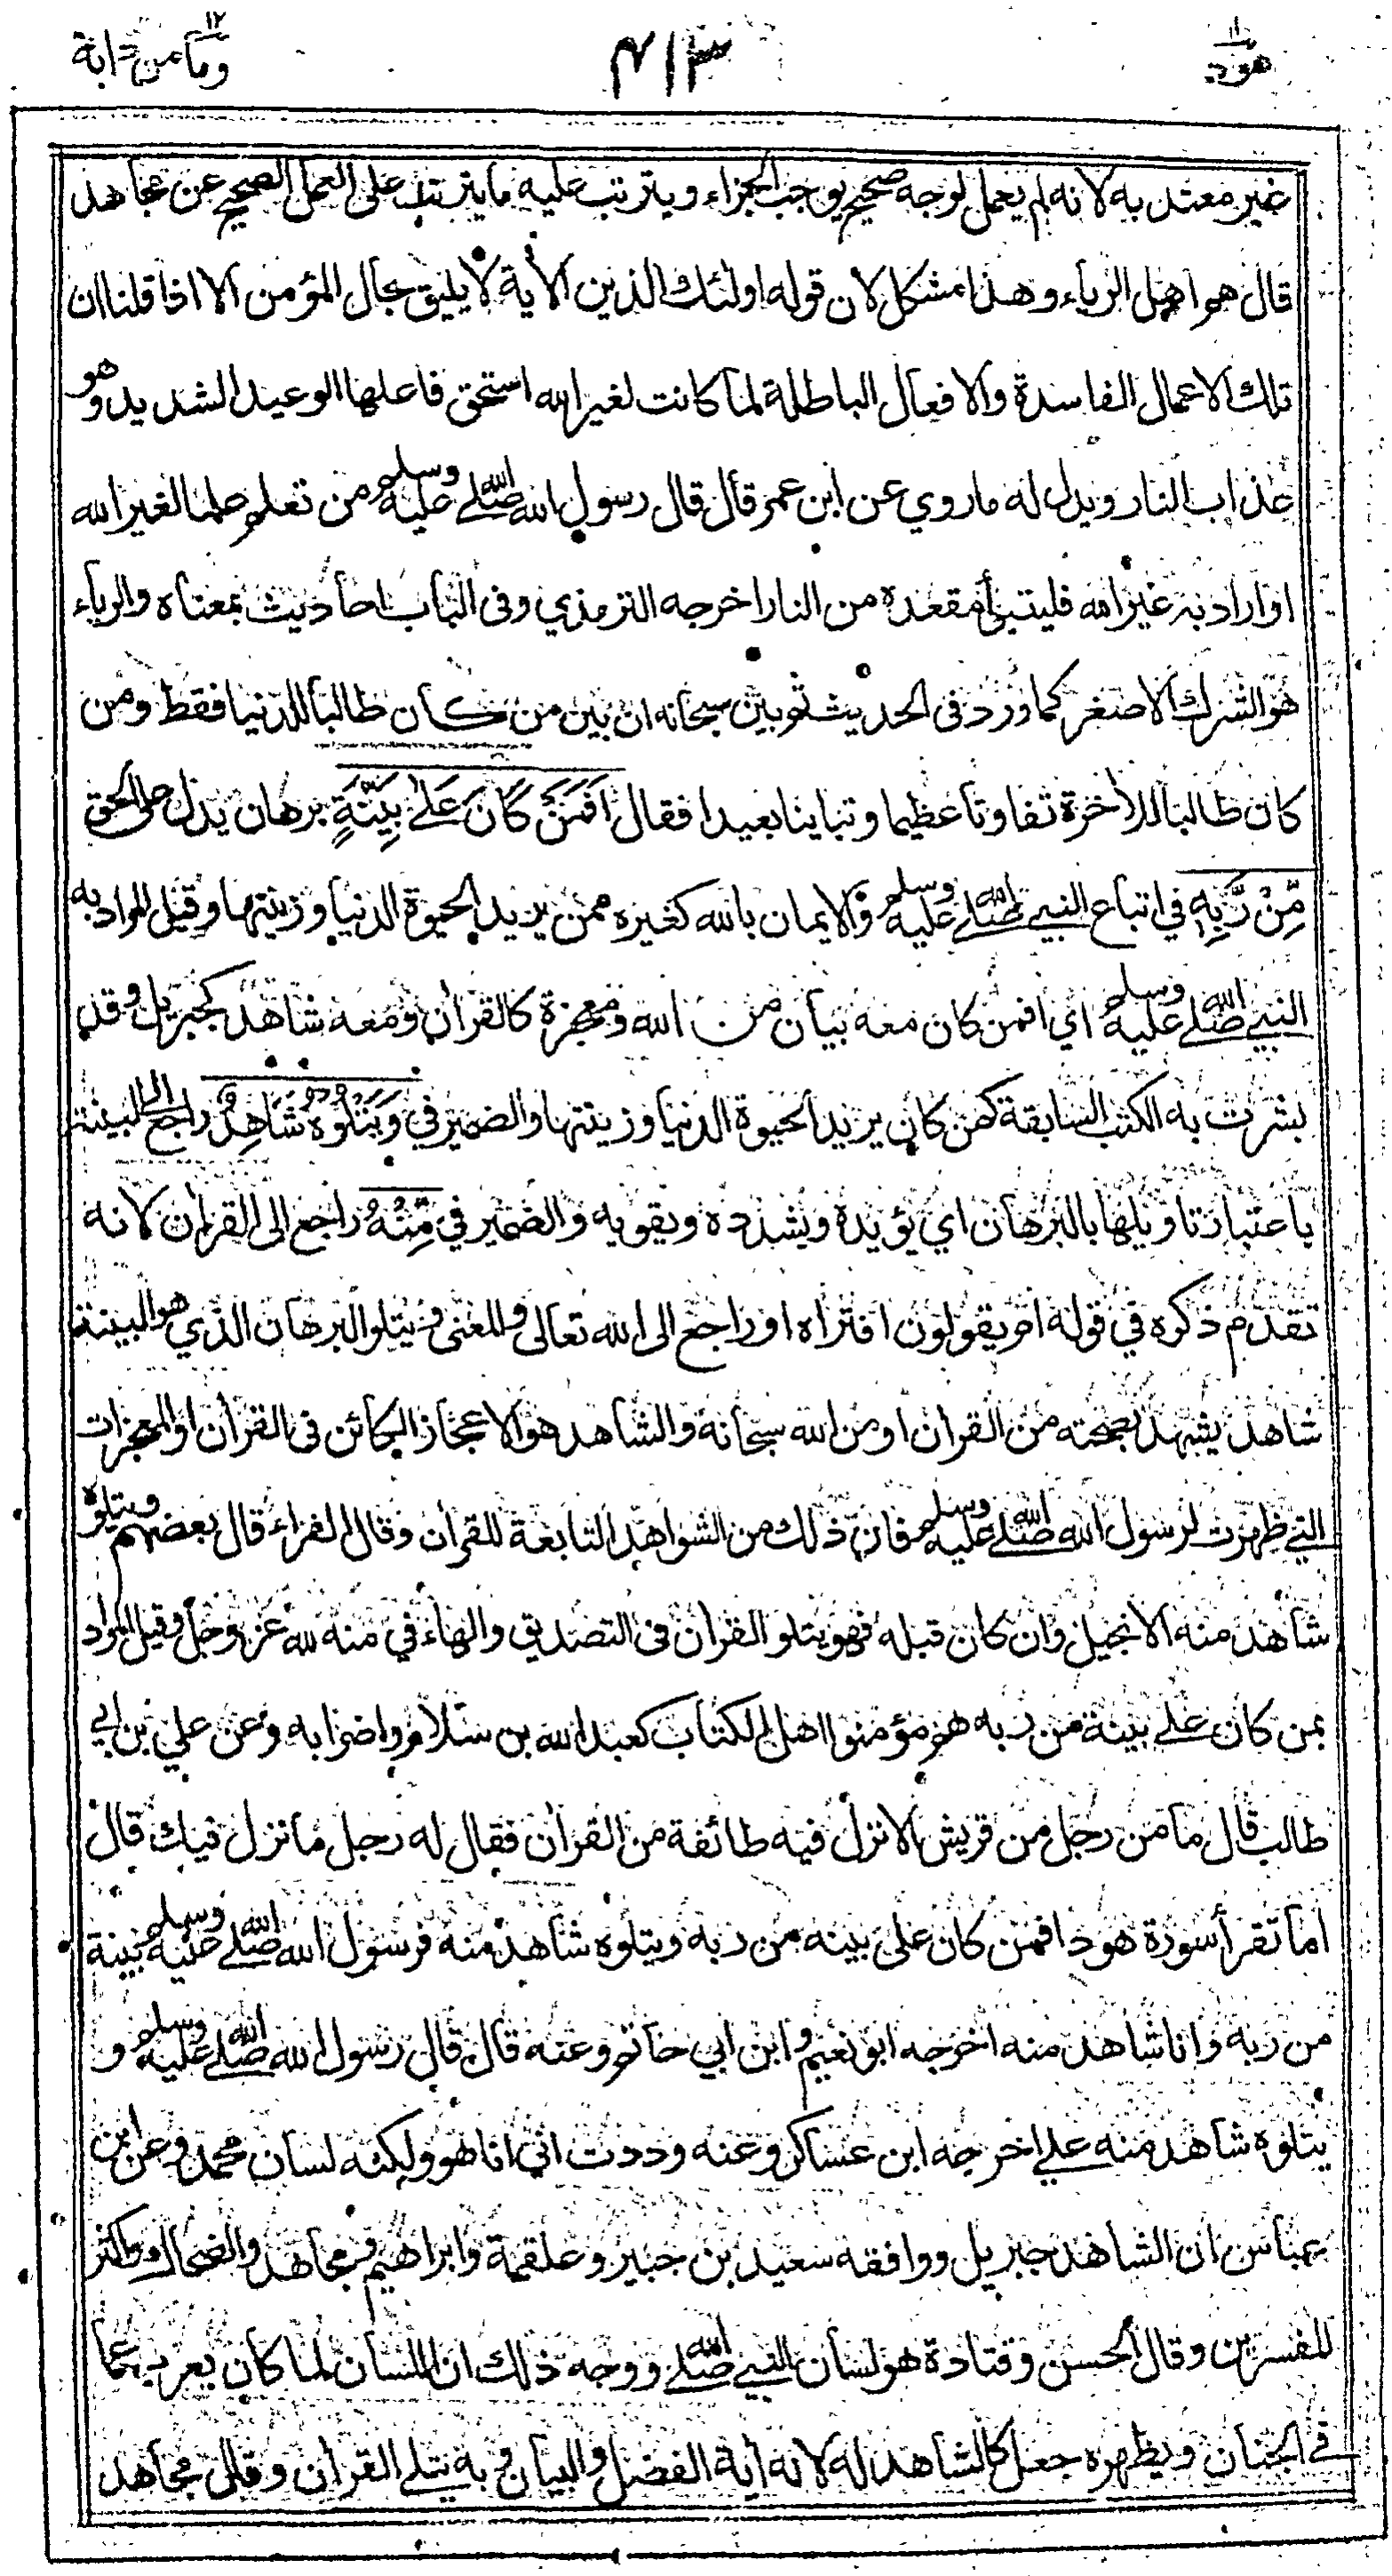 هود ١١
٤١٣
وما من دابة ١٢
غير معتد به لانه لم يعمل لوجه صحيح يوجب الجزاء ويترتب عليه ما يترتب على العمل الصحيح عن مجاهد
قال هم اهل الرياء وهذا مشكل لان قوله اولئك الذين الأية لا يليق بحال المؤمن الا اذا قلنا ان
تلك الاعمال الفاسدة والافعال الباطلة لما كانت لغير الله استحق فاعلها الوعيد الشديد وهو
عذاب النار ويدل له ما روي عن ابن عمر قال قال رسول الله صلى الله عليه وسلم من تعلم علما لغير الله
او اراد به غير الله فليتبوأ مقعده من النار اخرجه الترمذي وفى الباب احاديث بمعناه والرياء
هو الشرك الاصغر كما ورد فى الحديث ثم بين سبحانه ان بين من كان طالبا للدنيا فقط ومن
كان طالبا للأخرة تفاوتا عظيما وتباينا بعيدا فقال اَفَمَنْ كَانَ عَلٰى بَيِّنَةٍ برهان يدل على الحق
مِّنْ رَّبِّهٖ في اتباع النبي صلى الله عليه وسلم والايمان بالله كغيره ممن يريد الحيوة الدنيا وزينتها وقيل المراد به
النبي صلى الله عليه وسلم اي افمن كان معه بيان من الله ومعجزة كالقرأن ومعه شاهد كجبريل وقد
بشرت به الكتب السابقة كمن كان يريد الحيوة الدنيا وزينتها والضمير في وَيَتْلُوْهُ شَاهِدٌ راجع الى البينة
باعتبار تاويلها بالبرهان اي يؤيده ويشدده ويقويه والضمير في مِّنْهُ راجع الى القرأن لانه
تقدم ذكره في قوله ام يقولون افتراه او راجع الى الله تعالى والمعنى ويتلو البرهان الذي هو البينة
شاهد يشهد بصحته من القرأن او من الله سبحانه والشاهد هو الاعجاز الكائن فى القرأن او المعجزات
التي ظهرت لرسول الله صلى الله عليه وسلم فان ذلك من الشواهد التابعة للقرأن وقال الفراء قال بعضهم ويتلوه
شاهد منه الانجيل وان كان قبله فهو يتلو القرأن فى التصديق والهاء في منه لله عز وجل وقيل المراد
بمن كان على بينة من ربه هم مؤمنوا اهل الكتاب كعبد الله بن سلام واضرابه وعن علي بن ابي
طالب قال ما من رجل من قريش الا نزل فيه طائفة من القرأن فقال له رجل ما نزل فيك قال
اما تقرأ سورة هود افمن كان على بينه من ربه ويتلوه شاهد منه فرسول الله صلى الله عليه وسلم بينة
من ربه وانا شاهد منه اخرجه ابو نعيم وابن ابي حاتم وعنه قال قال رسول الله صلى الله عليه وسلم و
يتلوه شاهد منه علي اخرجه ابن عساكر وعنه وددت اني انا هو ولكنه لسان محمد وعن ابن
عباس ان الشاهد جبريل ووافقه سعيد بن جبير وعلقمة وابراهيم ومجاهد والضحاك واكثر
المفسرين وقال الحسن وقتادة هو لسان النبي صلى الله ووجه ذلك ان اللسان لما كان يعرب عما
في الجنان ويظهره جعل كالشاهد له لانه أية الفضل والبيان وبه يتلى القرأن وقال مجاهد